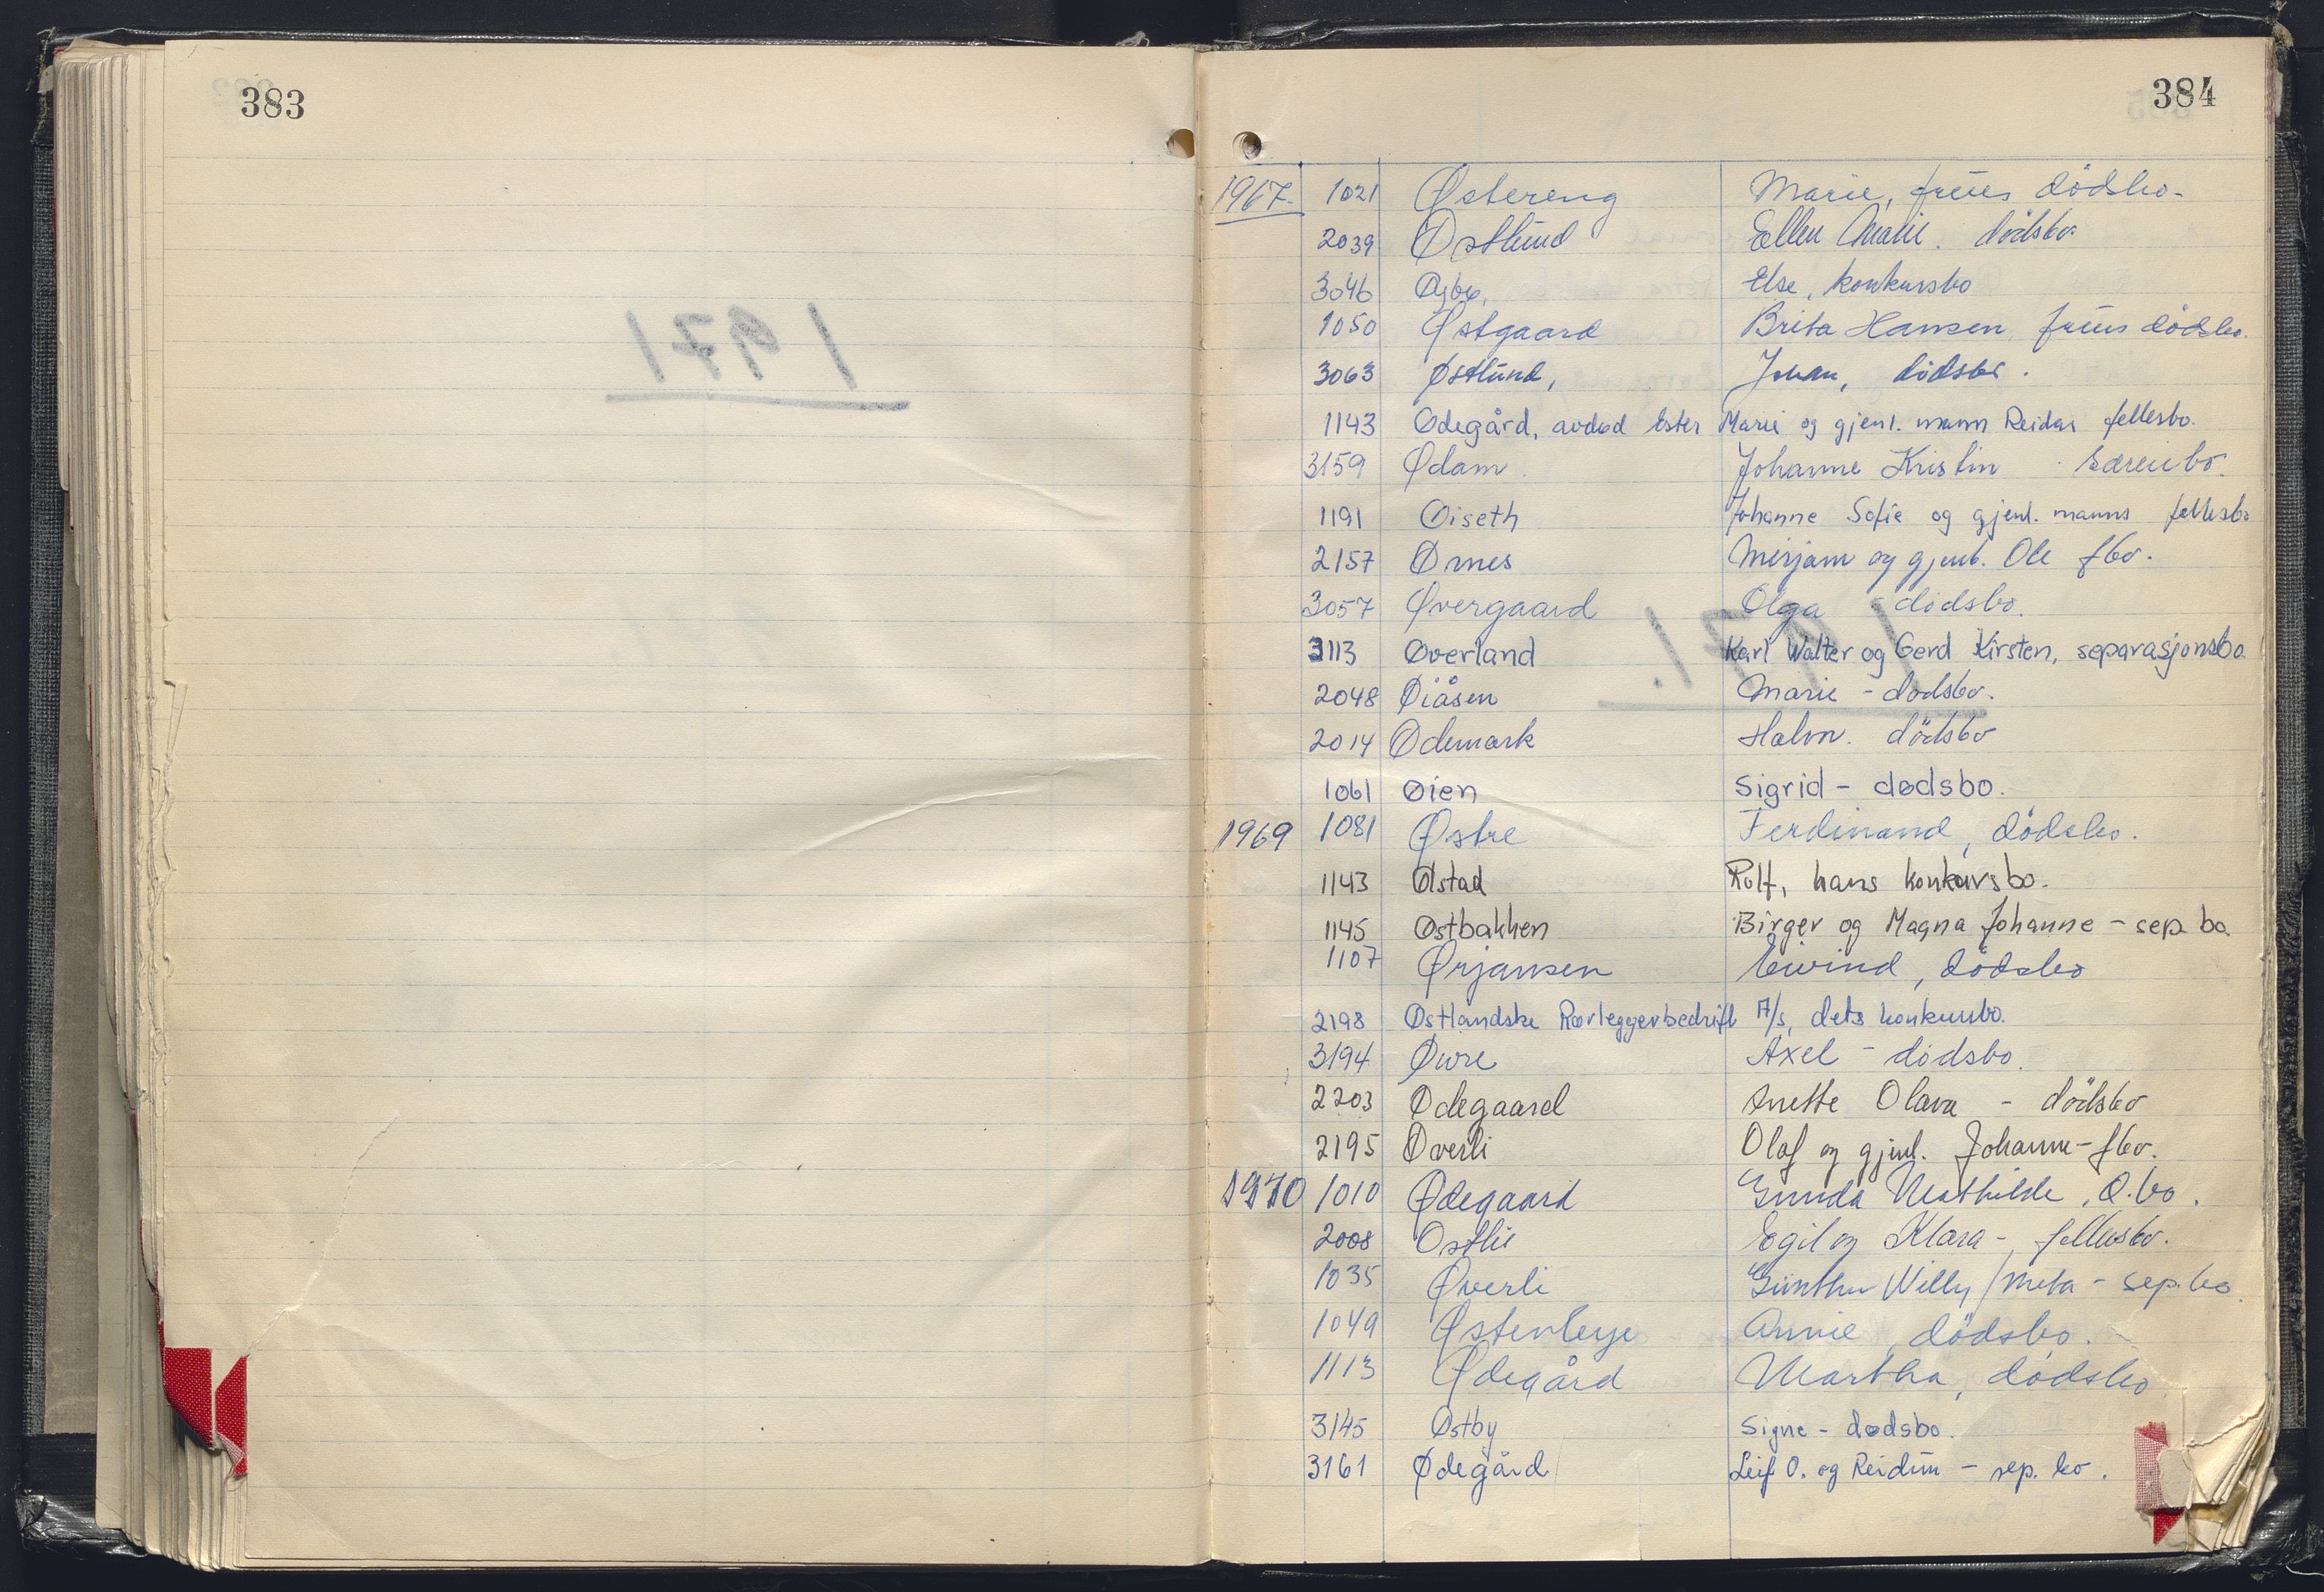 383
1971
384
1967. 1021 Østereng Marie, frues dödsbo.
2039 Østlund Ellen Marie. dödsbo
3046 Else, konkursbo
1050 Østgaard Brita Hansen, frues dödsbo.
3063 Østlund, Johan, dödsbo.
1143 Ødegård, avdød Ester Marie og gjenl. mann Reidar fellesbo.
3159 Ødam Johanne Kristin
1191 Øiseth Johanne Sofie og gjenl. manns fellesbo
2157 Ørnes Mirjam og gjenl. Ole fbo.
3057 Øvergaard Olga - dödsbo.
3113 Øverland Karl Walter og Gerd Kirsten, separasjonsbo.
2048 Øiåsen Marie - dødsbo.
2014 Ødemark Halvn. dödsbo
1061 Øien Sigrid - dødsbo.
1969 1081 Østre Ferdinand, dödsbo.
1143 Ølstad Rolf, hans konkursbo.
1145 Østbakken Birger og Magna Johanne - sep. bo.
1107 Ørjansen Eivind, dödsbo
2198 Østlandske Rørleggerbedrift A/s, dets konkursbo.
3194 Øvre Axel - dödsbo.
2203 Ødegaard Anette Olava - dödsbo
2195 Øverli Olaf og gjenl. Johanne - fbo.
1970 1010 Ødegaard Gunda Mathilde, d.bo.
2008 Østlie Egil og Klara - fellesbo.
1035 Øverli Günther Willy / Meta - sep.bo.
1049 Annie, dödsbo.
1113 Ødegård Martha, dödsbo
3145 Østby Signe - dødsbo.
3161 Ødegård Leif O. og Reidun - sep. bo.